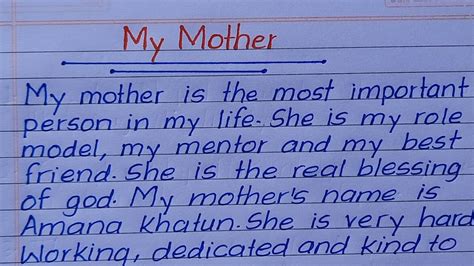 My Mother
My mother is the most important
person in my life. She is my role
model, my mentor and my best
friend. She is the real blessing
of god. My mother's name is
Amana Khatun. She is very hard
Working, dedicated and kind to